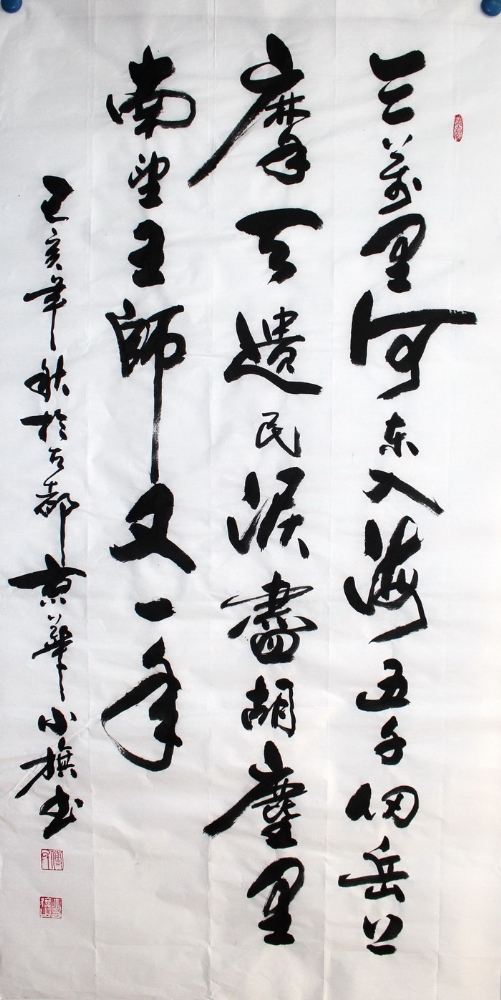 三萬里河東入海五千仞岳上
摩天遺民淚盡胡塵里
南望王師又一年
己亥年秋於古都京華小旗书